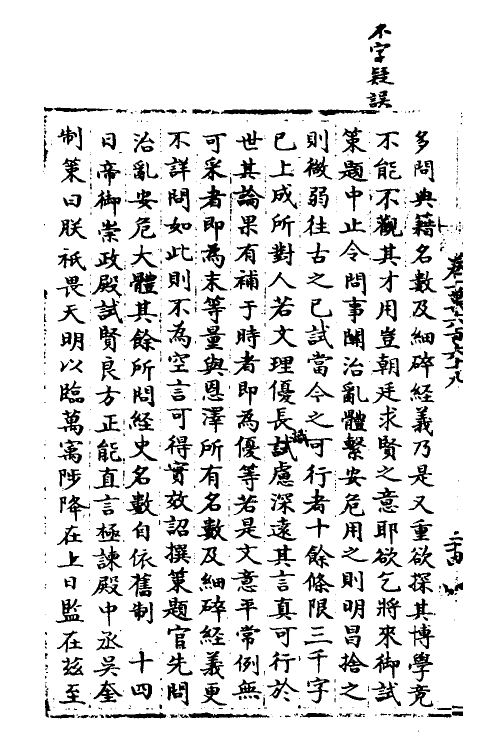 不字疑誤
卷一萬六百六十八
二十四
多問典籍名數及細碎經義乃是又重欲探其博學竟
不能不觀其才用豈朝廷求賢之意耶欲乞將來御試
策題中止令問事關治亂體繫安危用之則明昌捨之
則微弱往古之已試當今之可行者十餘條限三千字
已上成所對人若文理優長試慮深遠其言真可行於
識
世其論果有補于時者即為優等若是文意平常例無
可采者即為末等量與恩澤所有名數及細碎經義更
不詳問如此則不為空言可得實效詔撰策題官先問
治亂安危大體其餘所問經史名數自依舊制 十四
日帝御崇政殿試賢良方正能直言極諫殿中丞吳奎
制策曰朕祇畏天明以臨萬㝢陟降在上日監在玆至